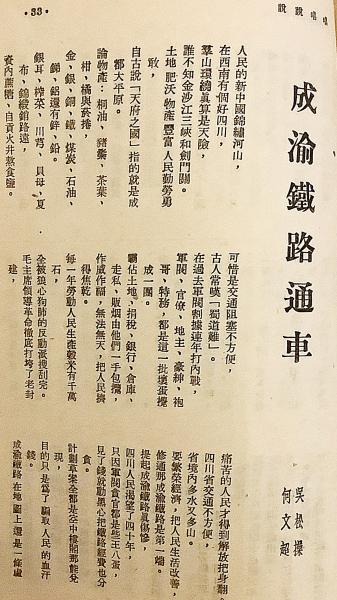 說說唱唱
·33·
成渝鐵路通車
吳松操
何文超
人民的新中國錦繡河山，
在西南有個好四川，
羣山環繞眞算是天險，
誰不知金沙江三峽和劍門關。
土地肥沃物產豐富人民勤勞勇
敢，
自古說「天府之國」指的就是成
都大平原。
論物產：桐油、豬鬃、茶葉、
柑、橘與菸捲，
金、銀、銅、鐵、煤炭、石油、
錫、鋁還有鋅、鉛。
銀耳、榨菜、川芎、貝母、夏
布、錦緞銷路遠，
資內蔗糖，自貢火井熬食鹽。
可惜是交通阻塞不方便，
古人常嘆「蜀道難」。
在過去軍閥割據連年打內戰，
軍閥、官僚、地主、豪紳、袍
哥、特務，都是這一批壞蛋攪
成一團。
霸佔土地、捐稅、銀行、倉庫、
走私、販烟由他們一手包攬，
作威作福，無法無天，把人民擠
得焦乾。
每一年勞動人民生產穀米有千萬
石，
全被狼心狗肺的反動派搜刮完。
毛主席領導革命徹底打垮了老封
建，
痛苦的人民才得到解放把身翻
四川省交通不方便，
省境內多水又多山。
要繁榮經濟，把人民生活改善，
修通那成渝鐵路是第一端。
提起成渝鐵路眞傷慘，
四川人民渴望了四十年，
只因軍閥貪官都是些王八蛋，
見了錢就動黑心把鐵路經費也分
貪。
計劃草案全都是空中樓閣那能兌
現，
目的只是爲了騙取人民的血汗
錢。
成渝鐵路在地圖上還是一條虛